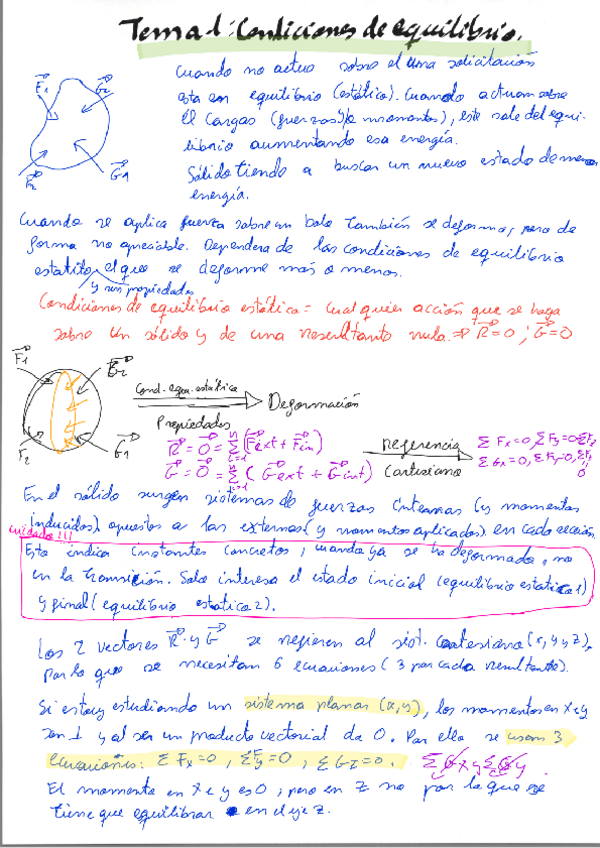 Tema 1: Condiciones de equilibrio.
Cuando no actua sobre el una solicitación
esta en equilibrio (estático). Cuando actuan sobre
él cargas (fuerzas y/o momentos), este sale del equi-
librio aumentando esa energía.
Sólido tiende a buscar un nuevo estado de menor
energía.
F1 G2
F2 G1
Cuando se aplica fuerza sobre un bola también se deforma, pero de
forma no apreciable. Dependera de las condiciones de equilibrio
estatito, el que se deforme más o menos.
y sus propiedades
Condiciones de equilibrio estático = cualquier acción que se haga
sobre un sólido y de una resultante nula. ⇒ R=0 ; G=0
F1 G2
F2 G1
Cond. equi. estática
Deformación
Propiedades
R = 0 = Σ (Fext + Fin)
G = 0 = Σ (Gext + Gint)
referencia
Cartesiana
Σ Fx=0, Σ Fy=0
Σ Gx=0,
En el sólido surgen sistemas de fuerzas internas (y momentos
inducidos) opuestos a las externas (y momentos aplicados) en cada sección.
cuidado!!!
Esto indica instantes concretos, cuando ya se ha deformado, no
en la transición. Solo interesa el estado inicial (equilibrio estatico 1)
y final (equilibrio estatico 2).
Los 2 vectores R y G se refieren al sist. cartesiano (x, y y z),
por lo que se necesitan 6 ecuaciones (3 por cada resultante).
Si estoy estudiando un sistema planar (x,y), los momentos en x e y
son ⊥ y al ser un producto vectorial da 0. Por ello se usan 3
ecuaciones: Σ Fx=0, Σ Fy=0, Σ Gz=0. Σ Gx y Σ Gy.
El momento en x e y es 0, pero en z no por lo que se
tiene que equilibrar en el eje z.